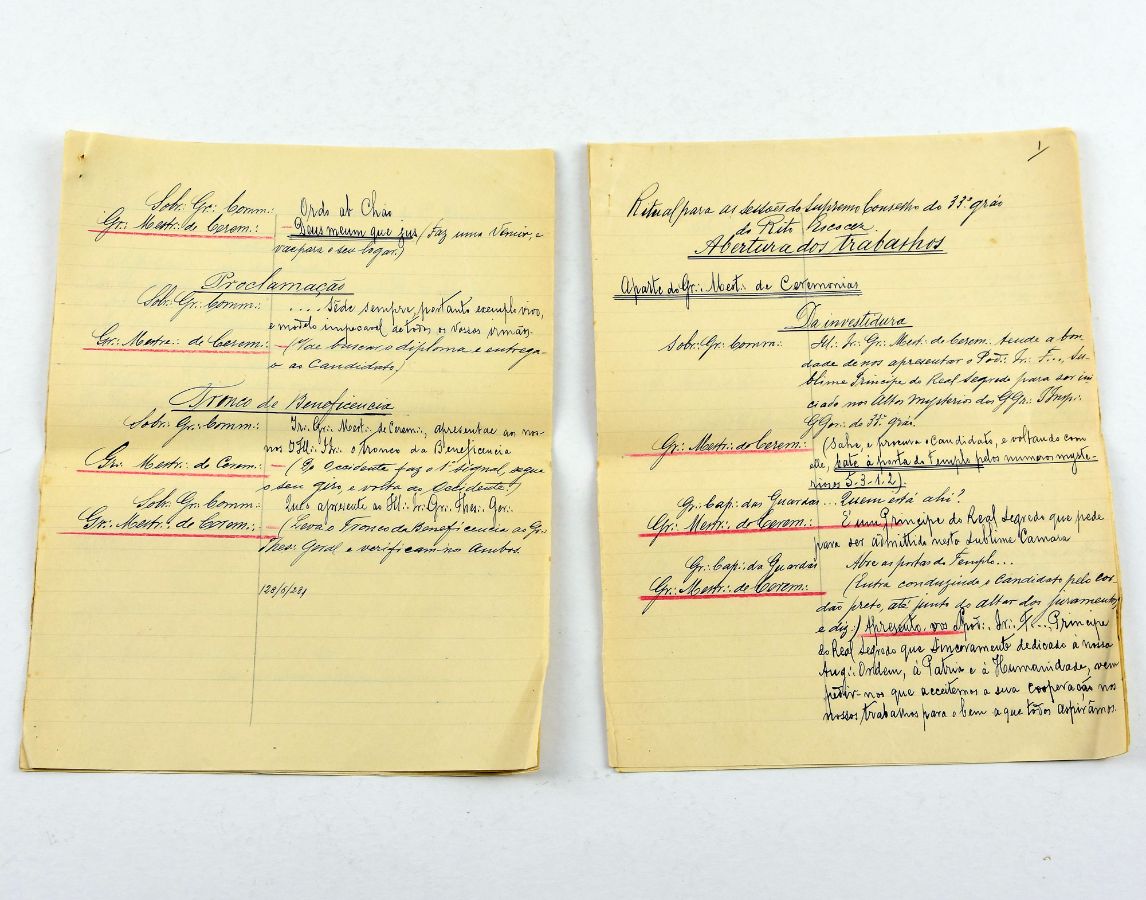 Sobr∴ Gr∴ Comm∴ Ordo ab Chao
Gr∴ Mestr∴ de Cerem∴ — Deus meum que jus (Faz uma Venia, e
vae para o seu logar.)
Proclamação
Sob∴ Gr∴ Comm∴ .... Sêde sempre, portanto exemplo vivo,
e modelo impecavel de todos os vossos irmãos.
Gr∴ Mestre∴ de Cerem∴ — (Vae buscar o diploma e entrega-
o ao Candidato)
Tronco de Beneficencia
Sobr∴ Gr∴ Comm∴ Ir∴ Gr∴ Mest∴ de Cerem∴, apresentae ao nos-
nos Ill∴ Ir∴ o tronco da Beneficencia
Gr∴ Mestr∴ de Cerem∴ — (Do Occidente faz o 1º signal, segue
o seu giro, e volta ao Occidente.)
Sobr∴ Gr∴ Comm∴ Que o apresente ao Ill∴ Ir∴ Gr∴ Thes∴ Ger∴
Gr∴ Mestr∴ de Cerem∴ — (Leva o Tronco de Beneficencia ao Gr∴
Thes∴ Geral e verificam-no Ambos.
1
Ritual para as sessões do Supremo Conselho do 33º gráo
do Rito Escocez
Abertura dos trabalhos
Aparte do Gr∴ Mest∴ de Ceremonias
Da investidura
Sobr∴ Gr∴ Comm∴ Ill∴ Ir∴ Gr∴ Mest∴ de Cerem∴ tende a bon-
dade de nos apresentar o Pod∴ Ir∴ F... Su-
blime Principe do Real Segredo para ser ini-
ciado nos Altos Mysterios dos GGr∴ IInsp∴
GGer∴ do 33º gráo.
Gr∴ Mestr∴ de Cerem∴ (Sahe, e procura o Candidato, e voltando com
elle, bate á porta do Templo pelos numeros myste-
riosos 5-3-1-2).
Gr∴ Cap∴ das Guardas ... Quem está ahi?
Gr∴ Mestr∴ de Cerem∴ — É um Principe do Real Segredo que pede
para ser admittido nesta Sublime Camara
Gr∴ Cap∴ da Guardas Abre as portas do Templo...
Gr∴ Mestr∴ de Cerem∴ (Entra conduzindo o Candidato pelo cor-
dão preto, até junto do altar dos juramentos
e diz:) Apresento vos o Pod∴ Ir∴ F... Principe
do Real Segredo que sinceramente dedicado á nossa
Aug∴ Ordem, á Patria e á Humanidade, vem
pedir-nos que acceitemos a sua cooperação nos
nossos trabalhos para o bem a que todos aspirâmos.